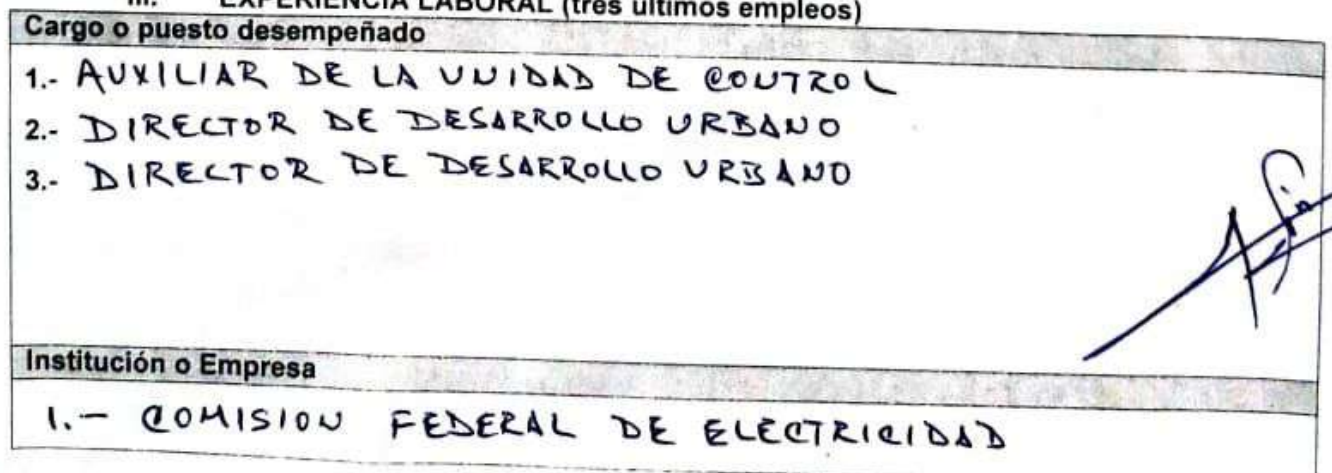 III. EXPERIENCIA LABORAL (tres últimos empleos)
Cargo o puesto desempeñado
1.- AUXILIAR DE LA UNIDAD DE CONTROL
2.- DIRECTOR DE DESARROLLO URBANO
3.- DIRECTOR DE DESARROLLO URBANO
Institución o Empresa
1.- COMISION FEDERAL DE ELECTRICIDAD